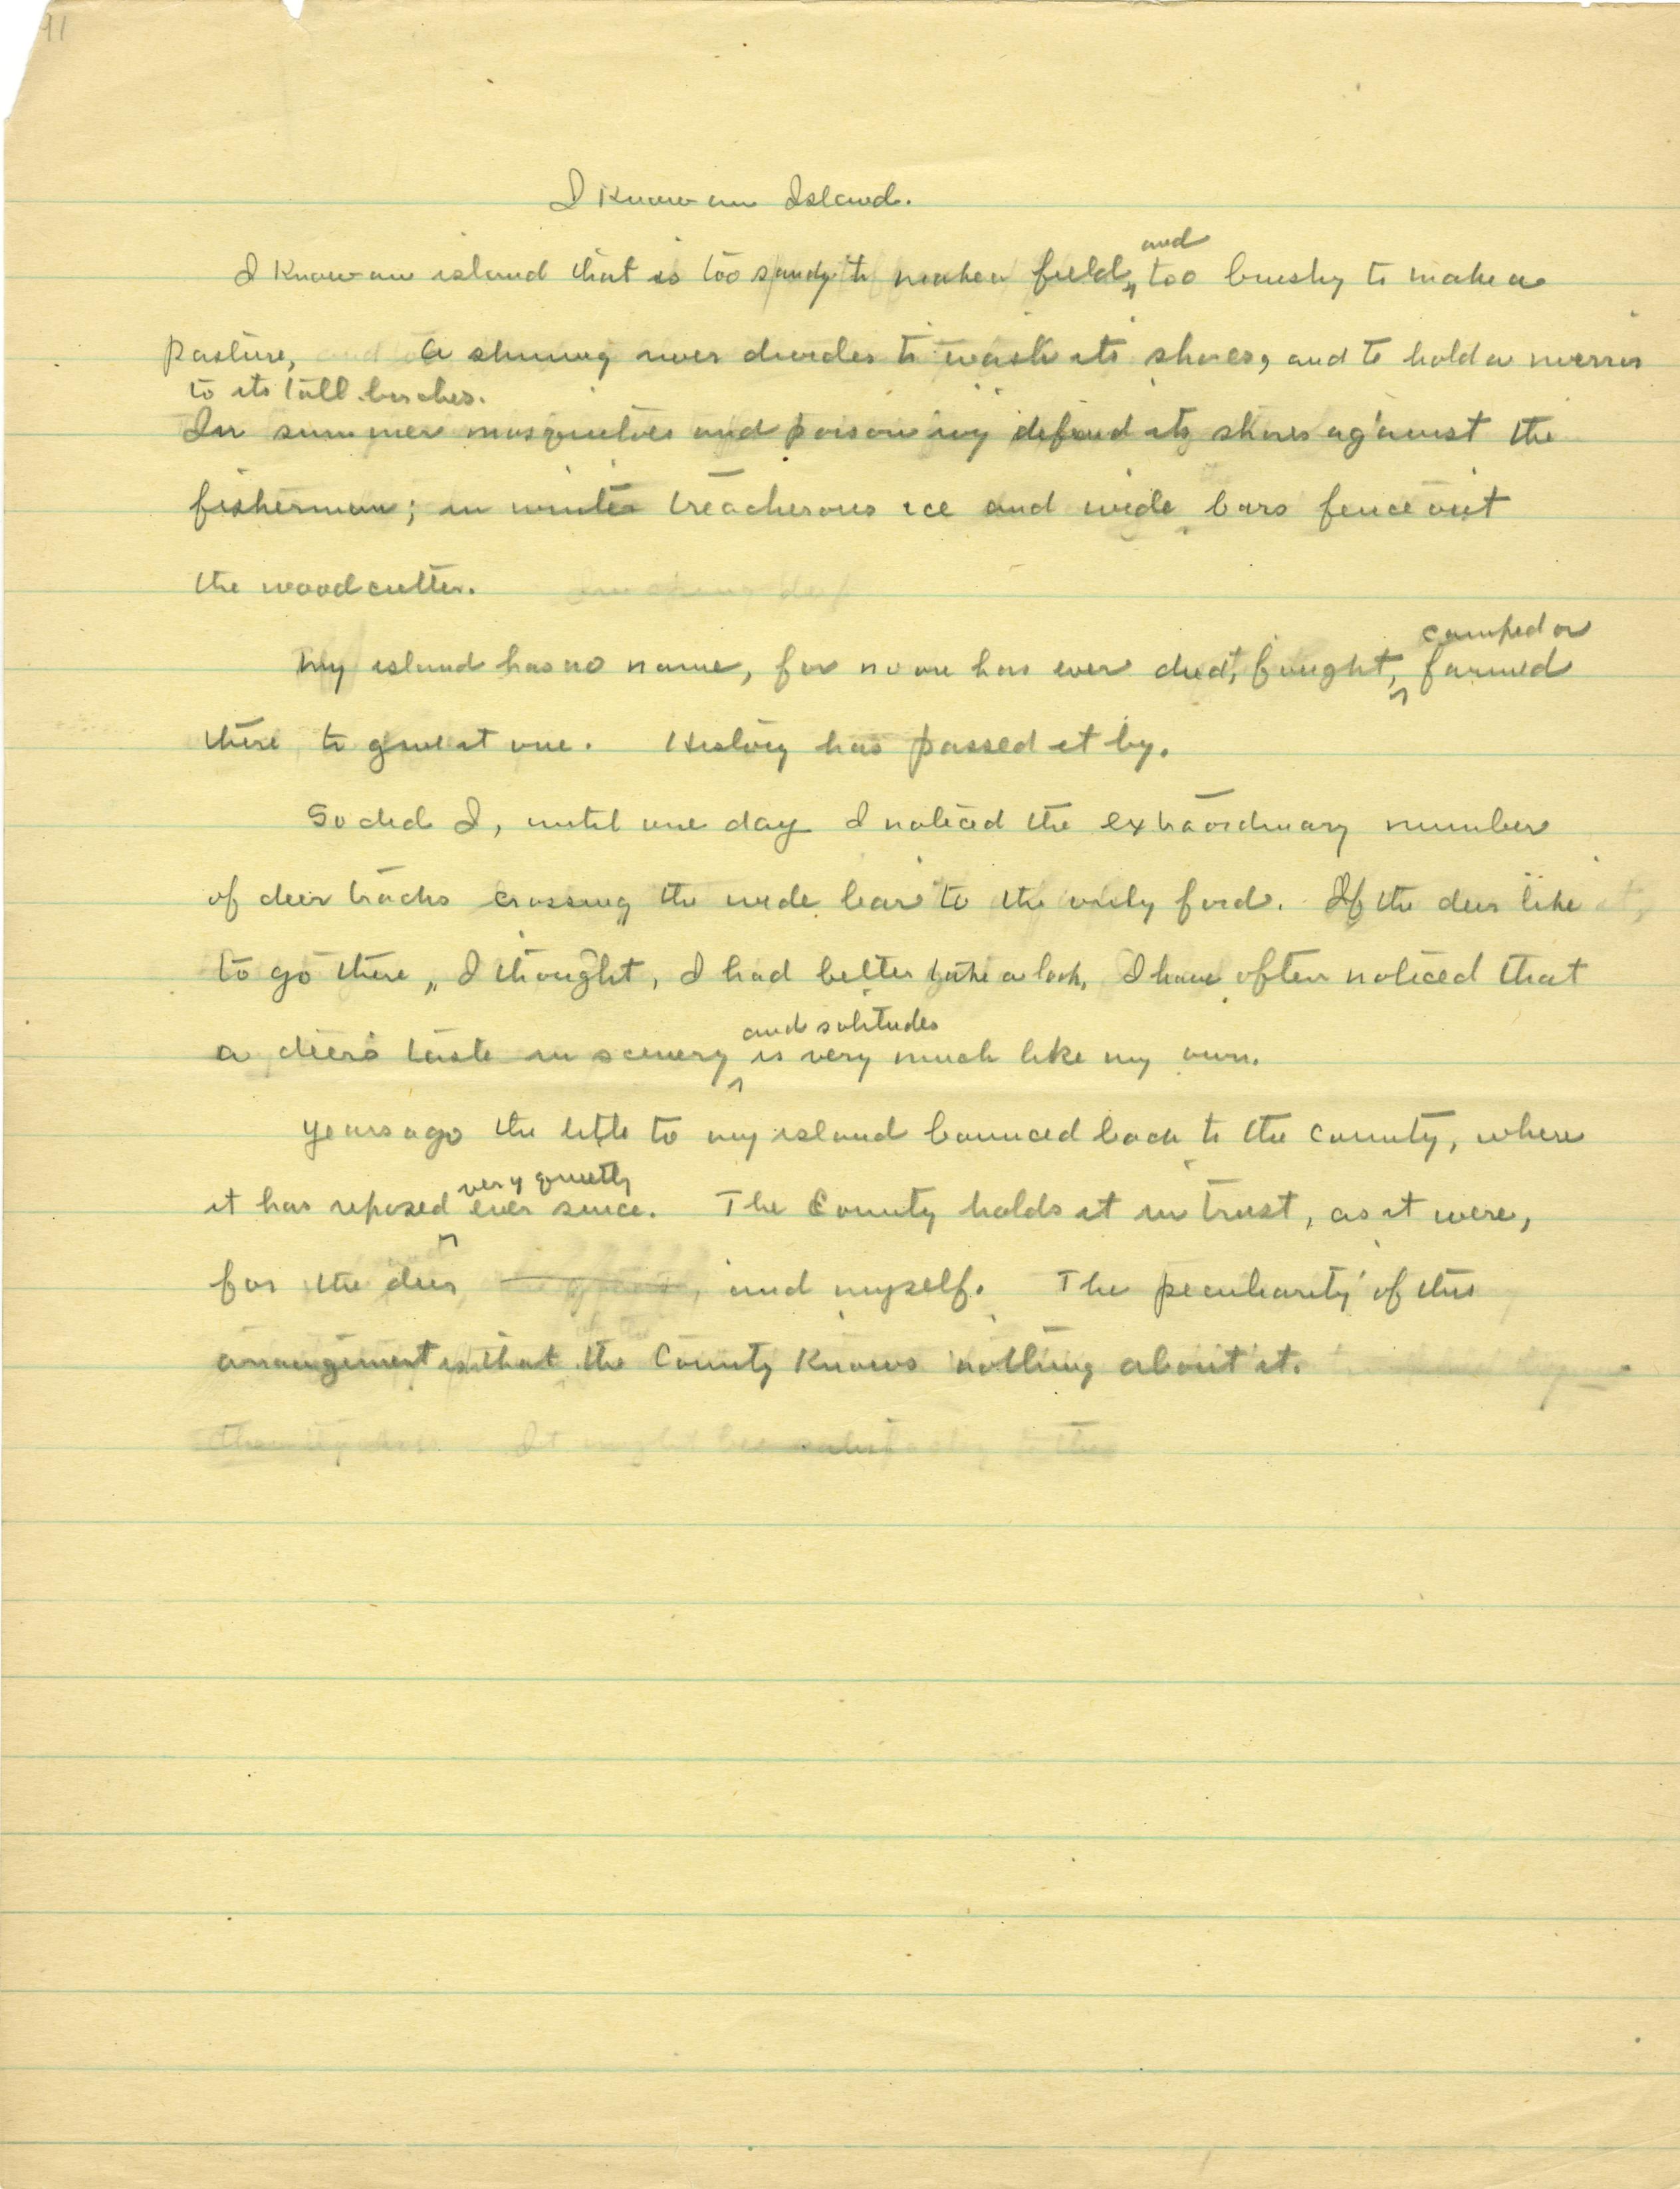 91
I Know an Island.
and
I Know an island that is too sandy to make a field, too brushy to make a
pasture, A shining river divides to wash its shores, and to hold a mirror
to its tall birches.
In summer mosquitoes and poison ivy defend its shores against the
fisherman; in winter treacherous ice and wide bars fence out
the woodcutter.
camped or
My island has no name, for no one has ever died, fought, farmed
there to give it one. History has passed it by.
So did I, until one day I noticed the extraordinary number
of deer tracks crossing the wide bar to the only ford. If the deer like
to go there, I thought, I had better take a look, I have often noticed that
and solitudes
a deer's taste in scenery is very much like my own.
Years ago the title to my island bounced back to the County, where
very quietly
it has reposed ever since. The County holds it in trust, as it were,
for the deer and myself. The peculiarity of this
arrangement is that the County Knows nothing about it.
It might be